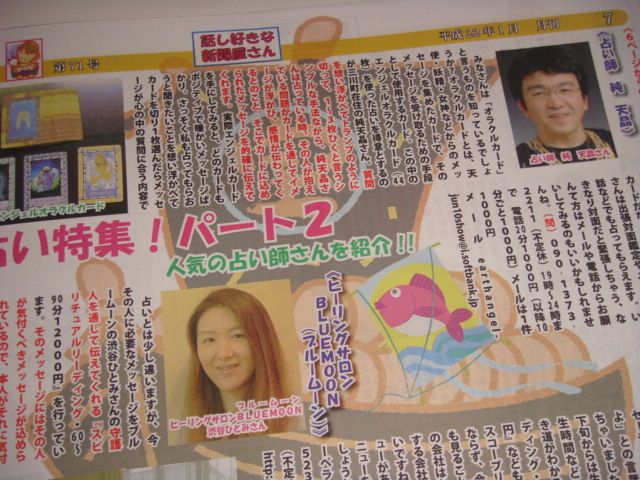 第71号
話し好きな
新聞屋さん
平成22年1月 月刊
7
《占い師 純 天晶》
占い師 純 天晶さん
みなさんは「オラクルカード」
と言うものを知っているでしょ
うか？オラクルカードとは、天
使・妖精・女神などからのメッ
セージを集めたカードで、その
メッセージを受け取るための手段
として使用するカード。この中の
エンジェルオラクルカード（44
枚）を使った占いを得意とするの
が三川町在住の純天晶さん。質問
を想い浮かべてトランプのように
切って、1〜3枚ひくと言うシ
ンプルな手法ながら、純天晶さ
んは占っている時、その人が抱え
ている問題がカードを通してイメ
ージが浮かび、感情が伝わってく
るとのこと。そこでカードに込め
られたメッセージを的確に伝えて
くれます。実際エンジェルカード
を手にしてみると、どのカードも
ポジティブで暖かいメッセージば
かり。さっそく私も占ってもらお
うと聞きたいことを想い浮かべて
カードを切り1枚選んだらメッセ
ージが心の中の質問に合う内容で
エンジェルオラクルカード
さんは出張対面鑑定や、
話などでも占ってもらえます。い
きなり対面だと緊張しちゃう、な
んて方はメールや電話からお願
いしてみるのもいいかもしれませ
んね。（問）090・1373・
2211（不定休）19時〜24時ま
で 電話20分1000円（以降10
分ごと+1000円）メールは1件
1000円
メール earthangel-
jun10show@i.softbank.jp
占い特集！パート2
人気の占い師さんを紹介!!
《ヒーリングサロン
BLUEMOON
（ブルームーン）》
ブルームーン
ヒーリングサロンBLUEMOON
渋谷ひとみさん
占いとは少し違いますが、今
その人に必要なメッセージをブル
ームーンの渋谷ひとみさんの守護
人を通して伝えてくれる「スピ
リチュアルリーディング・60〜
90分12000円」を行ってい
ます。そのメッセージにはその人
が気付くべきメッセージが込めら
れているので、本人がそれに気付